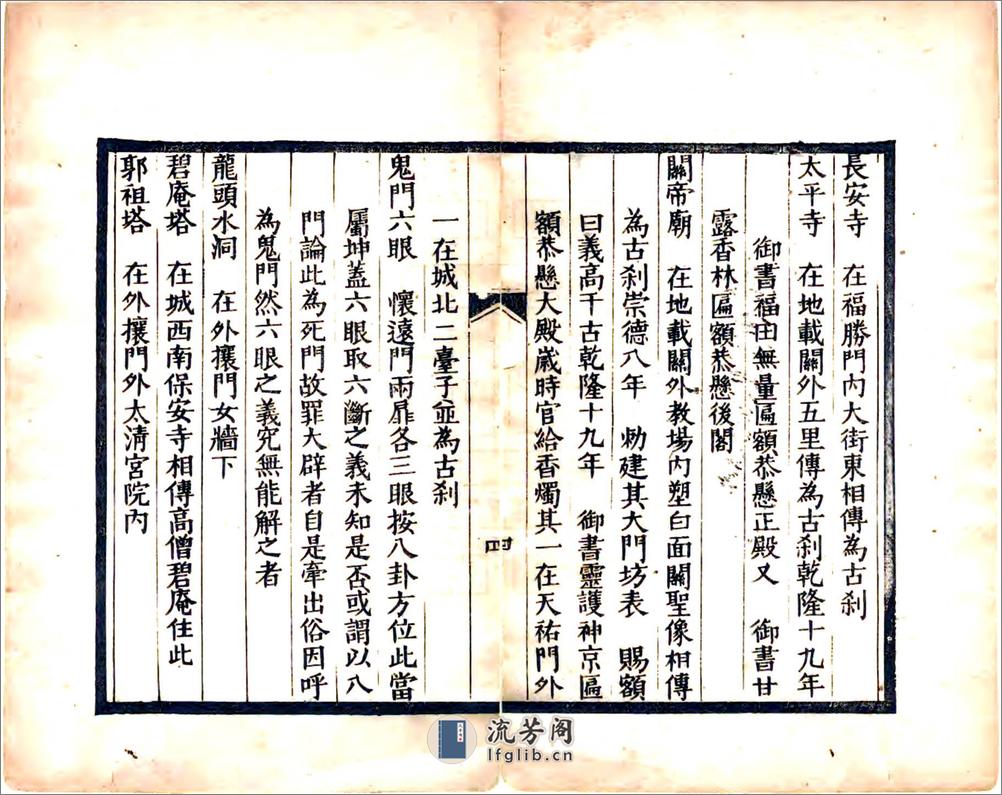 長安寺　在福勝門內大街東相傳為古刹
太平寺　在地載關外五里傳為古刹乾隆十九年
御書福田無量匾額恭懸正殿又　御書甘
露香林匾額恭懸後閣
關帝廟　在地載關外教場內塑白面關聖像相傳
為古刹崇德八年　勅建其大門坊表　賜額
曰義高千古乾隆十九年　御書靈護神京匾
額恭懸大殿歲時官給香燭其一在天祐門外
四
一在城北二臺子並為古刹
鬼門六眼　懷遠門兩扉各三眼按八卦方位此當
屬坤蓋六眼取六斷之義未知是否或謂以八
門論此為死門故罪大辟者自是牽出俗因呼
為鬼門然六眼之義究無能解之者
龍頭水洞　在外攘門女牆下
碧庵塔　在城西南保安寺相傳高僧碧庵住此
郭祖塔　在外攘門外太清宮院內
流芳阁
lfglib.cn